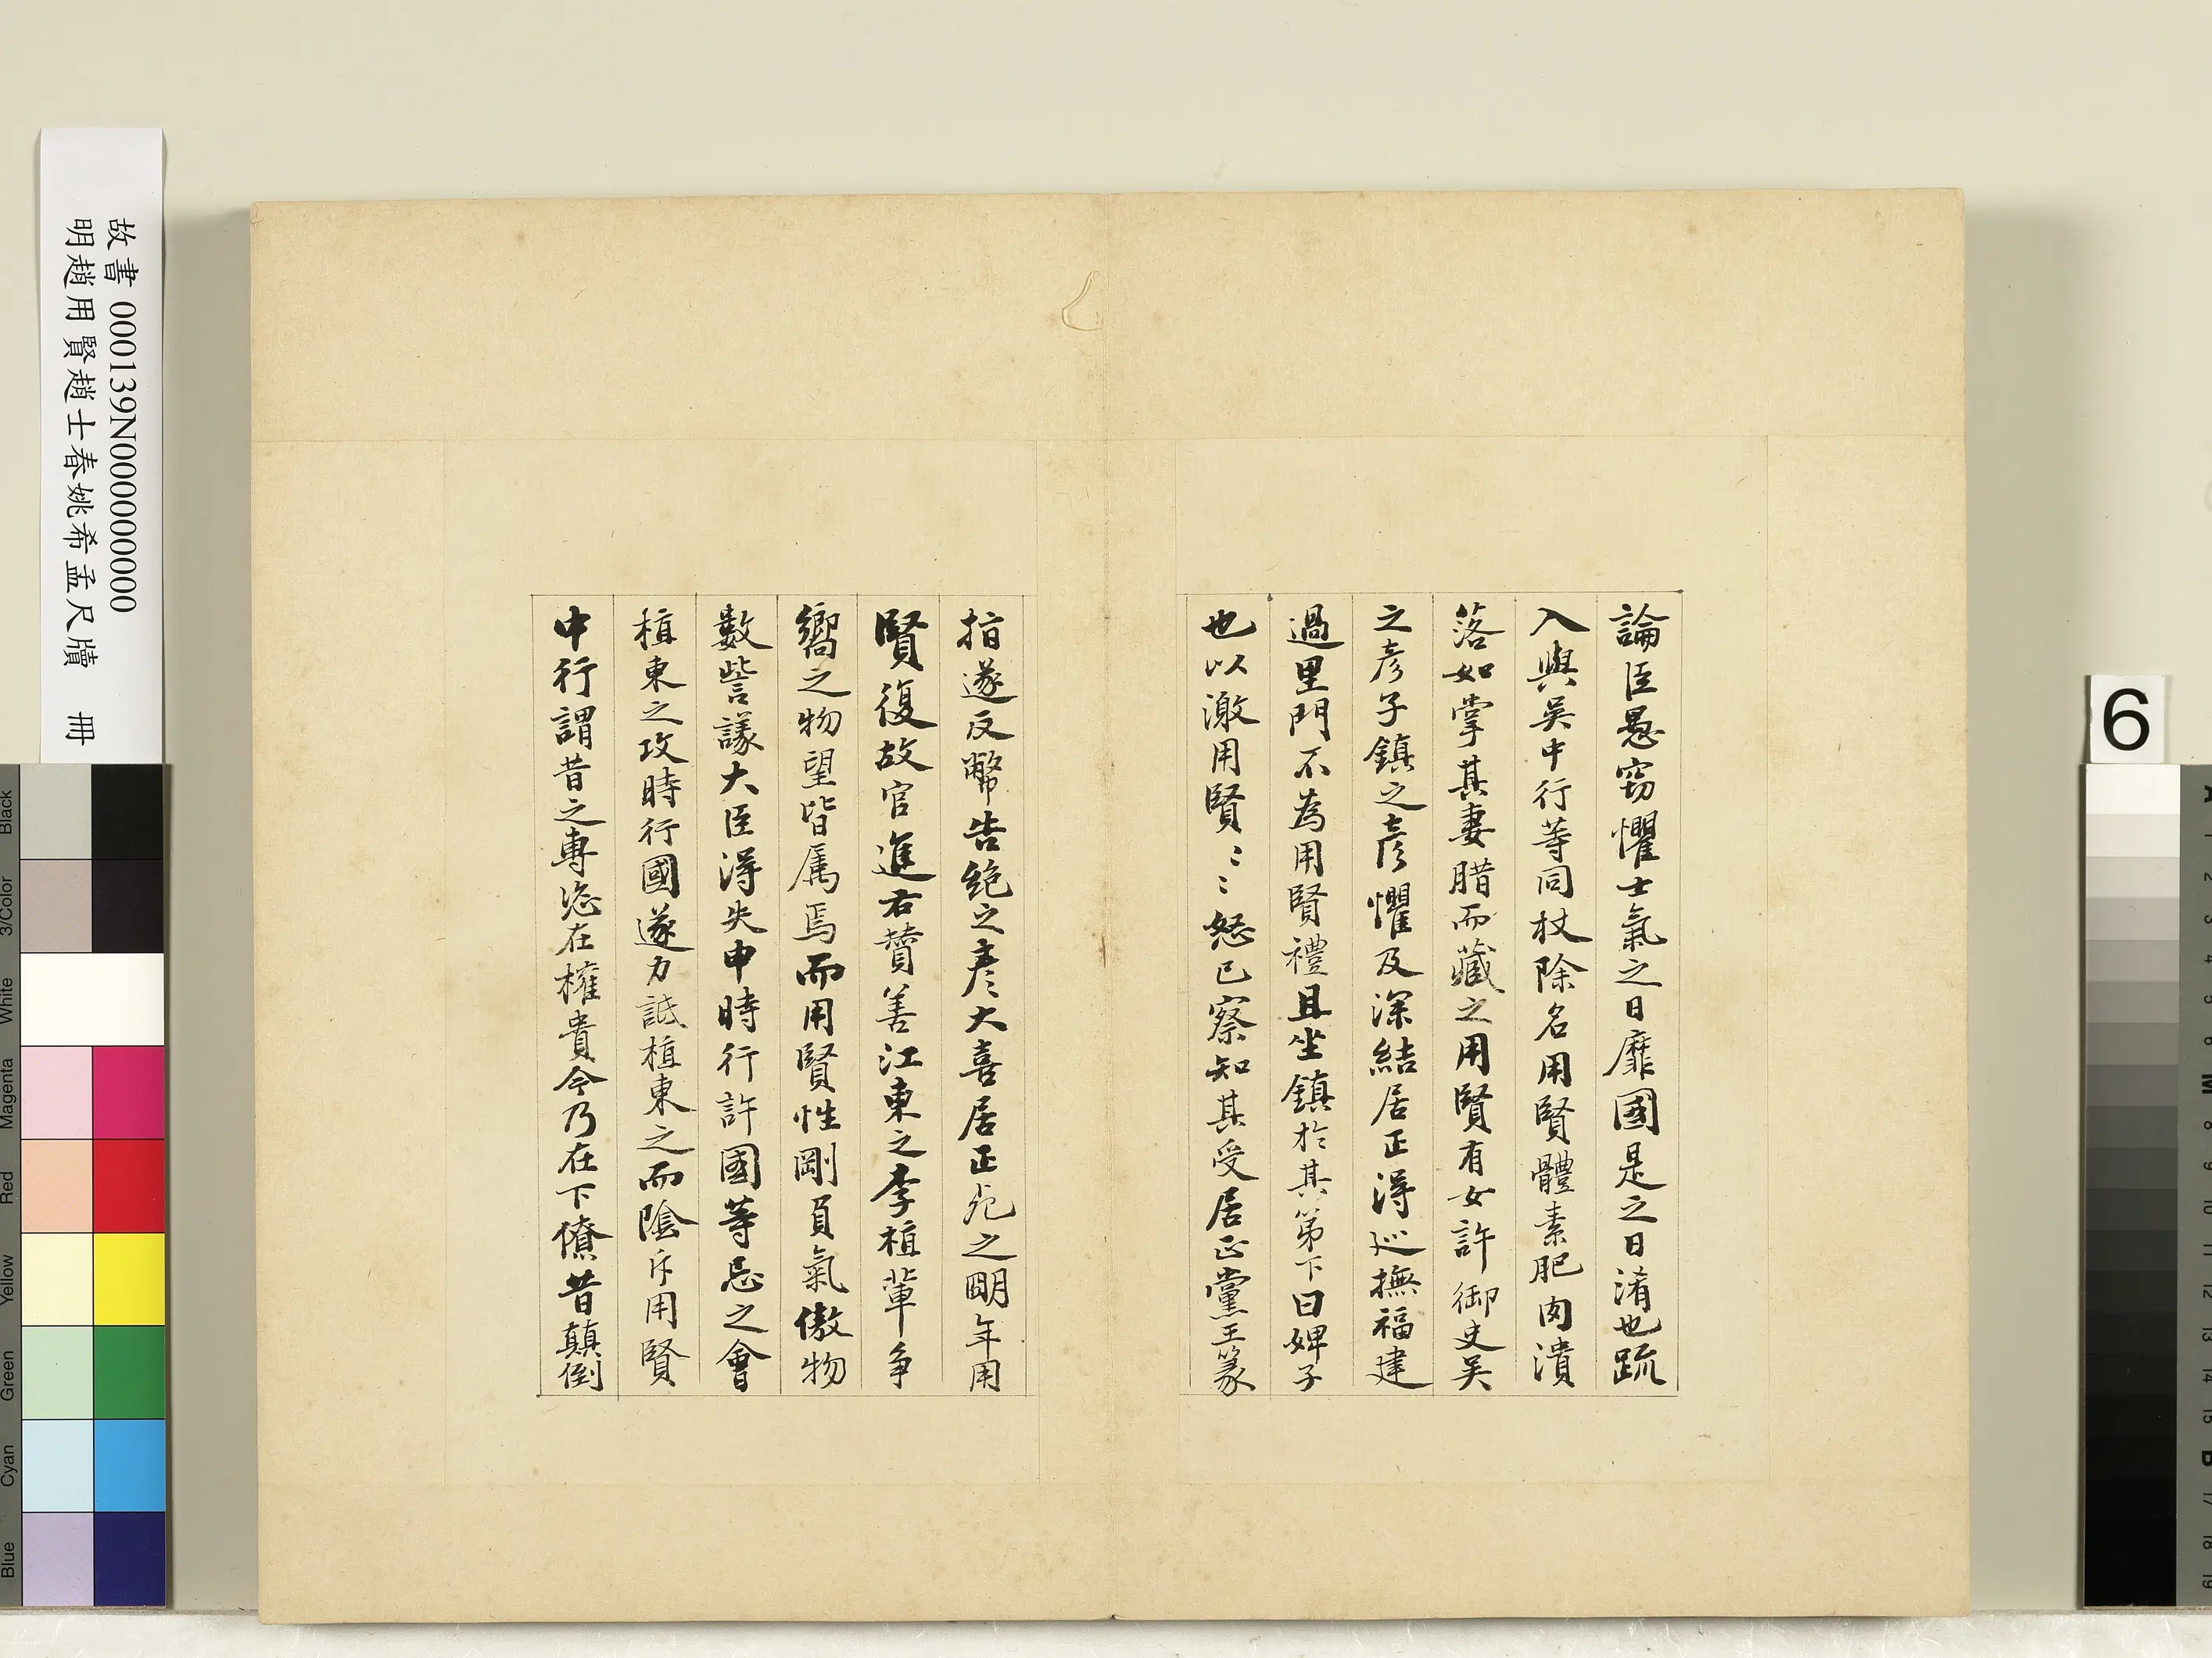 論臣愚竊懼士氣之日靡國是之日淆也疏
入與吳中行等同杖除名用賢體素肥肉潰
落如掌其妻腊而藏之用賢有女許御史吳
之彥子鎮之彥懼及深結居正得巡撫福建
過里門不為用賢禮且坐鎮於其弟下曰婢子
也以激用賢〻〻怒已察知其受居正黨王篆
指遂反幣告絕之彥大喜居正死之明年用
賢復故官進右贊善江東之李植輩爭
嚮之物望皆屬焉而用賢性剛負氣傲物
數訾議大臣得失申時行許國等忌之會
植東之攻時行國遂力詆植東之而陰斥用賢
中行謂昔之專恣在權貴今乃在下僚昔顛倒
故書 000139N000000000
明趙用賢趙士春姚希孟尺牘 冊
6
Black
3/Color
White
Magenta
Red
Yellow
Green
Cyan
Blue
A
1
2
3
4
5
6
M
8
9
10
11
12
13
14
15
B
17
18
19